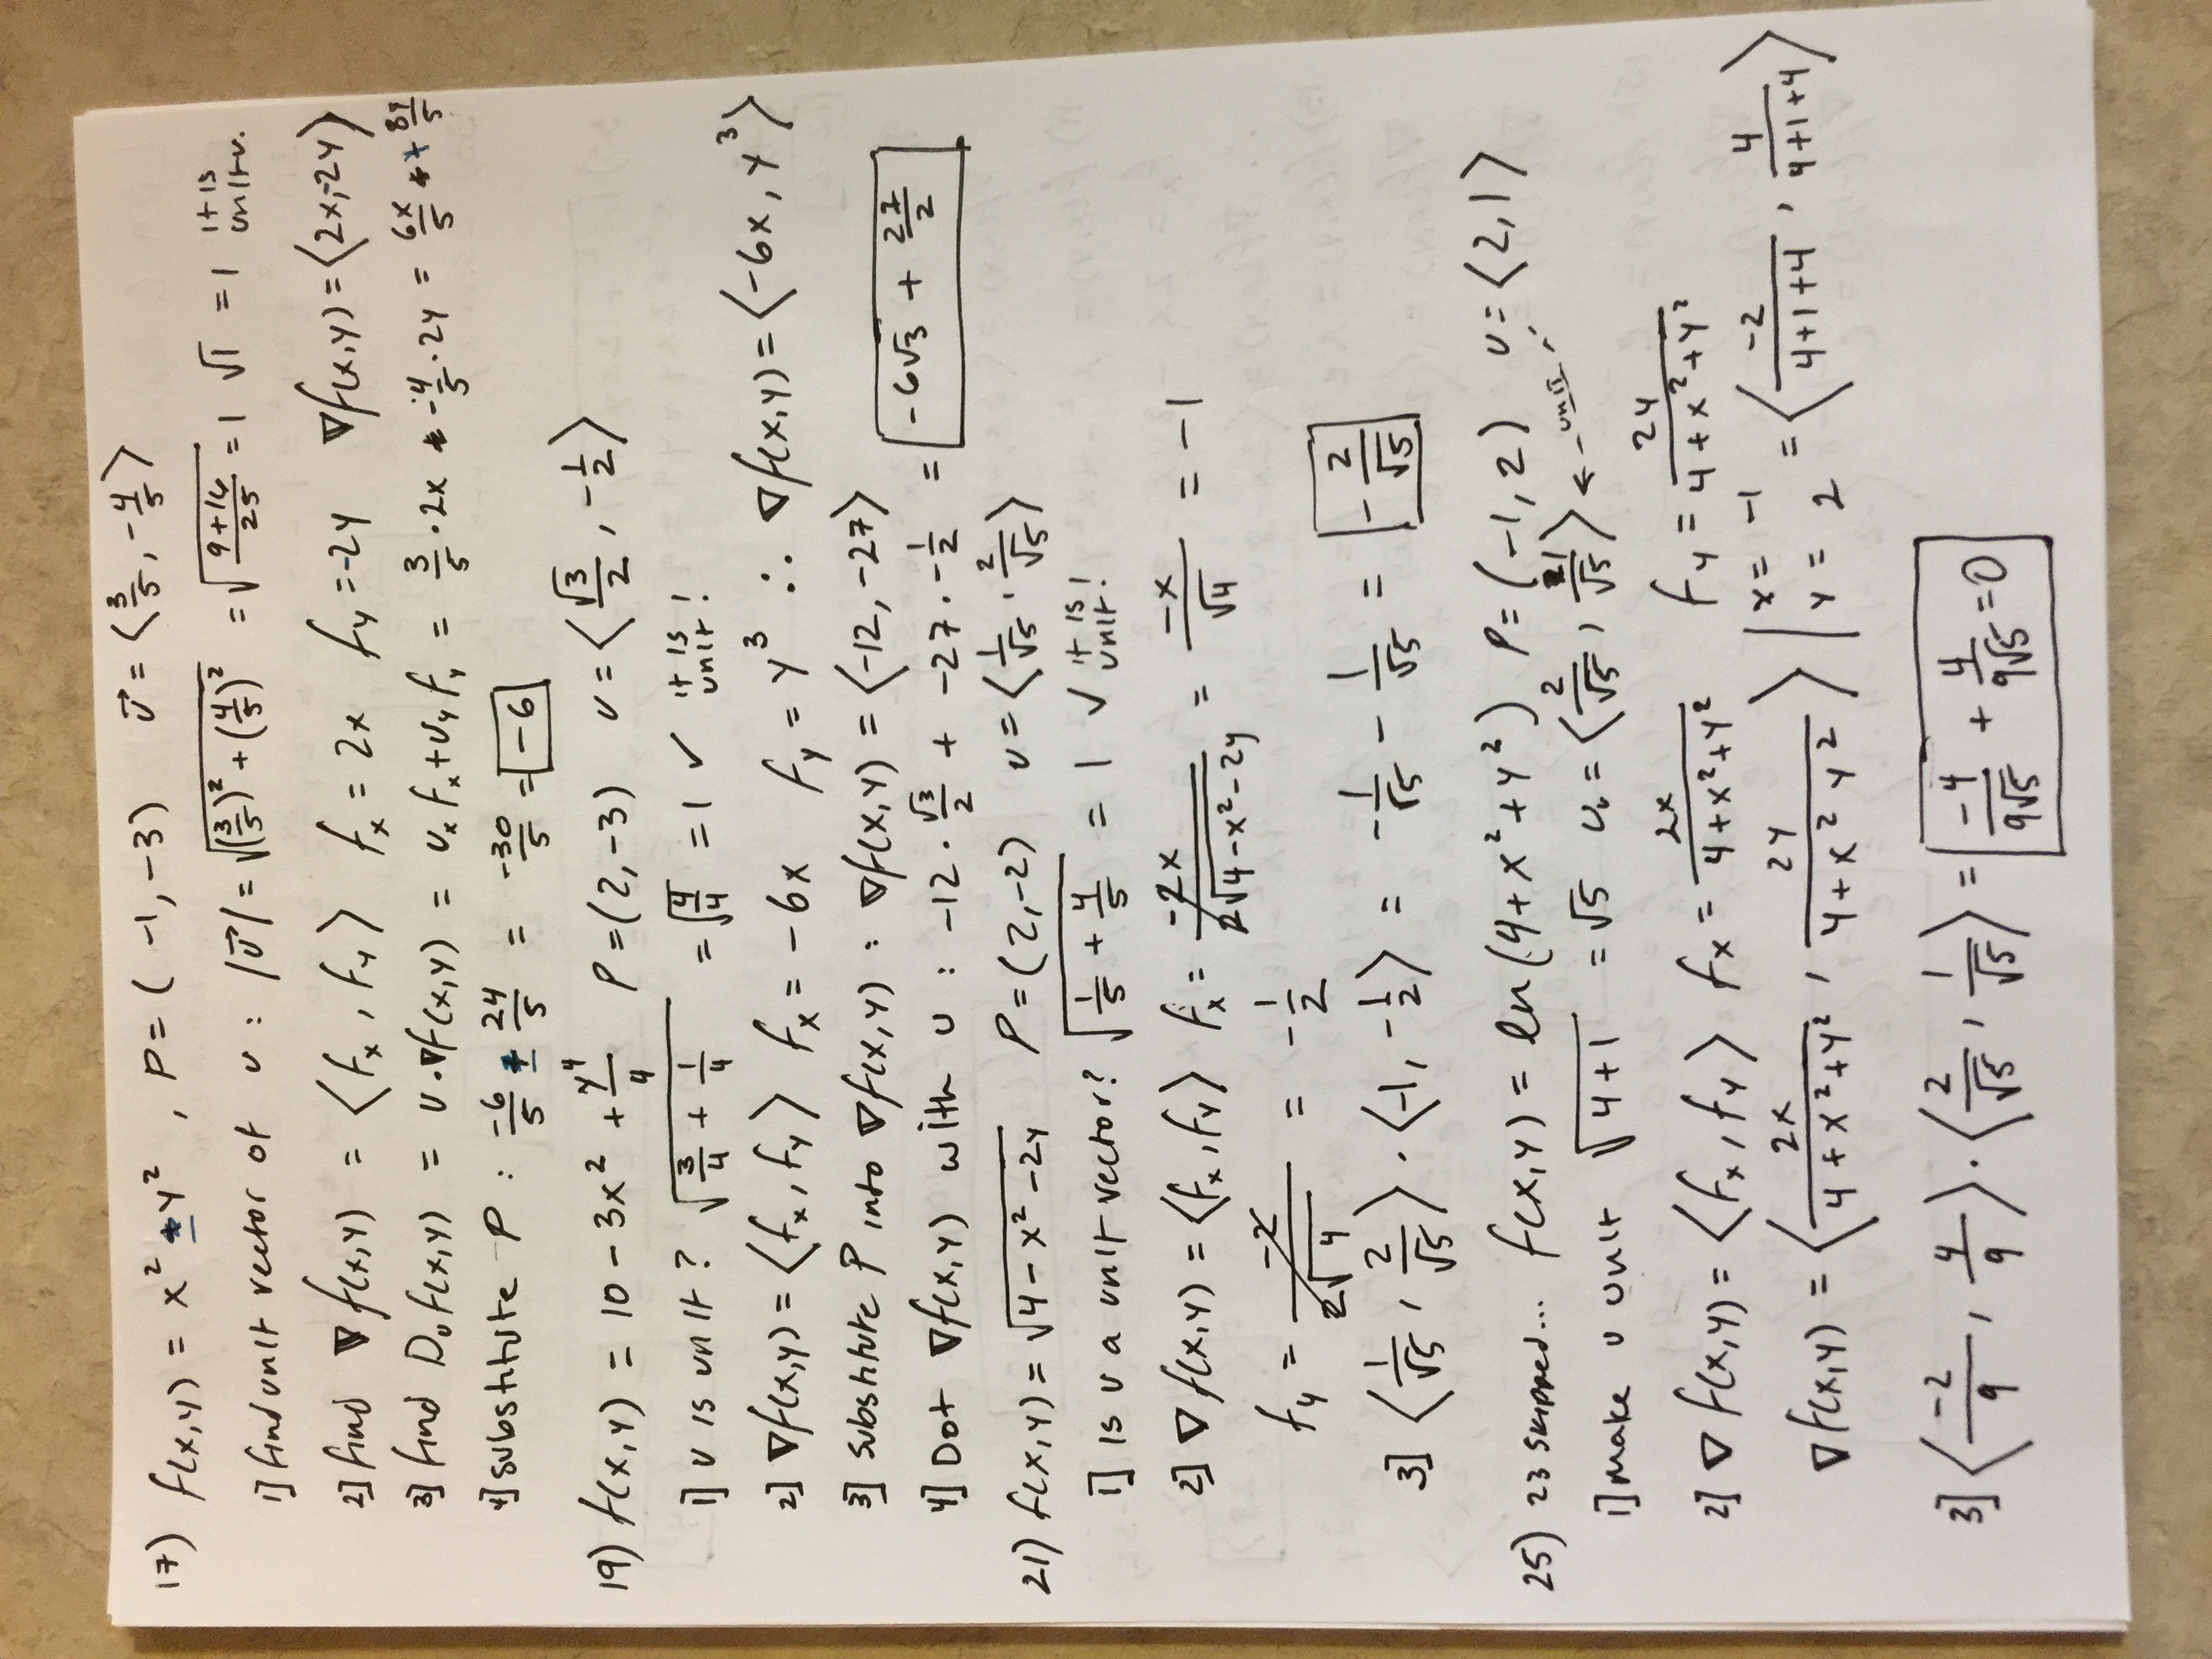 17) f(x,y) = x² - y² , P = (-1,-3) u⃗ = ⟨3/5, -4/5⟩
1] find unit vector of u : |u⃗| = √((3/5)² + (4/5)²) = √((9+16)/25) = 1 √1 = 1 it is unit v.
2] find ∇f(x,y) = ⟨fx , fy⟩ fx = 2x fy = -2y ∇f(x,y) = ⟨2x, -2y⟩
3] find Duf(x,y) = u·∇f(x,y) = ux fx + uy fy = 3/5 · 2x - -4/5 · 2y = 6x/5 + 8y/5
4] substitute P : -6/5 - 24/5 = -30/5 = -6
19) f(x,y) = 10 - 3x² + y⁴/4 P = (2,-3) u = ⟨√3/2, -1/2⟩
1] u is unit? √(3/4 + 1/4) = √(4/4) = 1 ✓ it is unit!
2] ∇f(x,y) = ⟨fx, fy⟩ fx = -6x fy = y³ ∴ ∇f(x,y) = ⟨-6x, y³⟩
3] substitute P into ∇f(x,y) : ∇f(x,y) = ⟨-12, -27⟩
4] Dot ∇f(x,y) with u : -12 · √3/2 + -27 · -1/2 = -6√3 + 27/2
21) f(x,y) = √(4 - x² - 2y) P = (2,-2) u = ⟨1/√5, 2/√5⟩
1] is u a unit vector? √(1/5 + 4/5) = 1 ✓ it is unit!
2] ∇f(x,y) = ⟨fx, fy⟩ fx = -2x/(2√(4-x²-2y)) = -x/√4 = -1
fy = -2/(2√4) = -1/2
3] ⟨1/√5, 2/√5⟩ · ⟨-1, -1/2⟩ = -1/√5 - 1/√5 = -2/√5
25) 23 skipped... f(x,y) = ln(4+x²+y²) P = (-1,2) u = ⟨2,1⟩
1] make u unit √(4+1) = √5 u = ⟨2/√5, 1/√5⟩ ← - unit -
2] ∇f(x,y) = ⟨fx, fy⟩ fx = 2x/(4+x²+y²) fy = 2y/(4+x²+y²)
∇f(x,y) = ⟨2x/(4+x²+y²), 2y/(4+x² y²)⟩ | x = -1 y = 2 = ⟨-2/(4+1+4), 4/(4+1+4)⟩
3] ⟨-2/9, 4/9⟩ · ⟨2/√5, 1/√5⟩ = -4/9√5 + 4/9√5 = 0